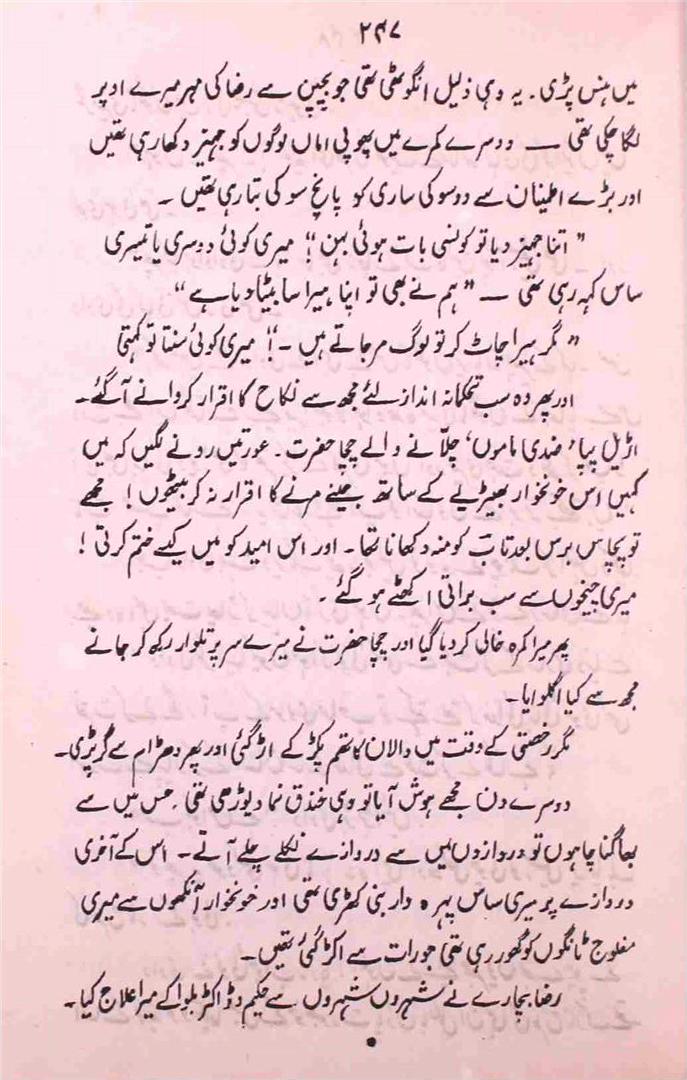 ۲۴۷
میں ہنس پڑی۔ یہ وہی ذلیل انگوٹھی تھی جو بچپن سے رضا کی مہر میرے اوپر
لگا چکی تھی — دوسرے کمرے میں پھوپی اماں لوگوں کو جہیز دکھا رہی تھیں
اور بڑے اطمینان سے دو سو کی ساری کو پانچ سو کی بتا رہی تھیں ۔
" اتنا جہیز دیا تو کونسی بات ہوئی بہن "! میری کوئی دوسری یا تیسری
ساس کہہ رہی تھی — " ہم نے بھی تو اپنا ہیرا سا بیٹا دیا ہے "
" مگر ہیرا چاٹ کر تو لوگ مر جاتے ہیں ۔"! میری کوئی سنتا تو کہتی
اور پھر وہ سب تحکمانہ انداز لئے مجھ سے نکاح کا اقرار کروانے آ گئے۔
اڑیل پپا، ضدی ماموں، چلّانے والے چچا حضرت۔ عورتیں رونے لگیں کہ میں
کہیں اس خونخوار بھیڑیے کے ساتھ جینے مرنے کا اقرار نہ کر بیٹھوں ! مجھے
تو پچاس برس بعد تاب کو منہ دکھانا تھا۔ اور اس امید کو میں کیسے ختم کرتی !
میری چیخوں سے سب براتی اکھٹے ہو گئے ۔
پھر میرا کمرہ خالی کر دیا گیا اور چچا حضرت نے میرے سر پر تلوار رکھ کر جانے
مجھ سے کیا اگلوایا۔
مگر رخصتی کے وقت میں دالان کا تھم پکڑ کے اڑ گئی اور پھر دھڑام سے گر پڑی۔
دوسرے دن مجھے ہوش آیا تو وہی خندق نما دیوڑھی تھی، جس میں سے
بھاگنا چاہوں تو دروازوں میں سے دروازے نکلے چلے آتے ۔ اس کے آخری
دروازے پر میری ساس پہرہ دار بنی کھڑی تھی اور خونخوار آنکھوں سے میری
مفلوج ٹانگوں کو گھور رہی تھی جو رات سے اکڑ گئی تھیں۔
رضا بچارے نے شہروں شہروں سے حکیم و ڈاکٹر بلوا کے میرا علاج کیا۔